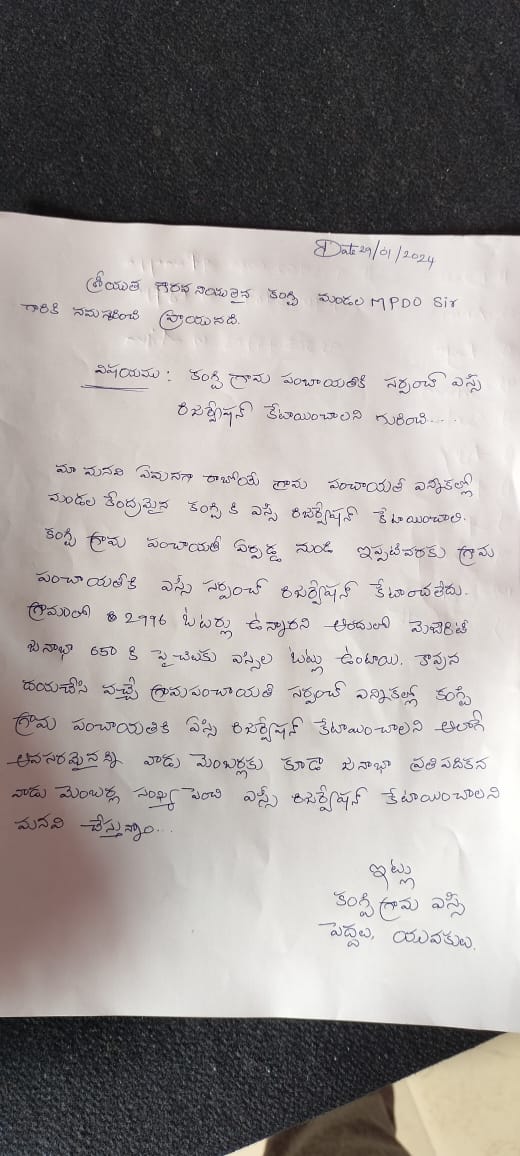 Date 29/01/2024
శ్రీయుత గౌరవనీయులైన కంగ్టి మండల MPDO Sir
గారికి నమస్కరించి వ్రాయునది.
విషయము : కంగ్టి గ్రామ పంచాయతికి సర్పంచ్ ఎస్సీ
రిజర్వేషన్ కేటాయించాలని గురించి....
మా మనవి ఏమనగా రాబోయే గ్రామ పంచాయతీ ఎన్నికల్లో
మండల కేంద్రమైన కంగ్టి కి ఎస్సీ రిజర్వేషన్ కేటాయించాలి.
కంగ్టి గ్రామ పంచాయతీ ఏర్పడ్డ నుండి ఇప్పటివరకు గ్రామ
పంచాయతీకి ఎస్సీ సర్పంచ్ రిజర్వేషన్ కేటాంచలేదు.
గ్రామంలో 2996 ఓటర్లు ఉన్నారని అందులో మెజారిటీ
జనాభా 650 కి పైచిలుకు ఎస్సీల ఓట్లు ఉంటాయి. కావున
దయచేసి వచ్చే గ్రామపంచాయతీ సర్పంచ్ ఎన్నికల్లో కంగ్టి
గ్రామ పంచాయతికి ఏస్సి రిజర్వేషన్ కేటాయించాలని అలాగే
అవసరమైనన్ని వార్డు మెంబర్లకు కూడా జనాభా ప్రతిపదికన
వార్డు మెంబర్ల సంఖ్య పెంచి ఎస్సీ రిజర్వేషన్ కేటాయించాలని
మనవి చేస్తున్నాం...
ఇట్లు
కంగ్టి గ్రామ ఎస్సీ
పెద్దలు, యువకులు.